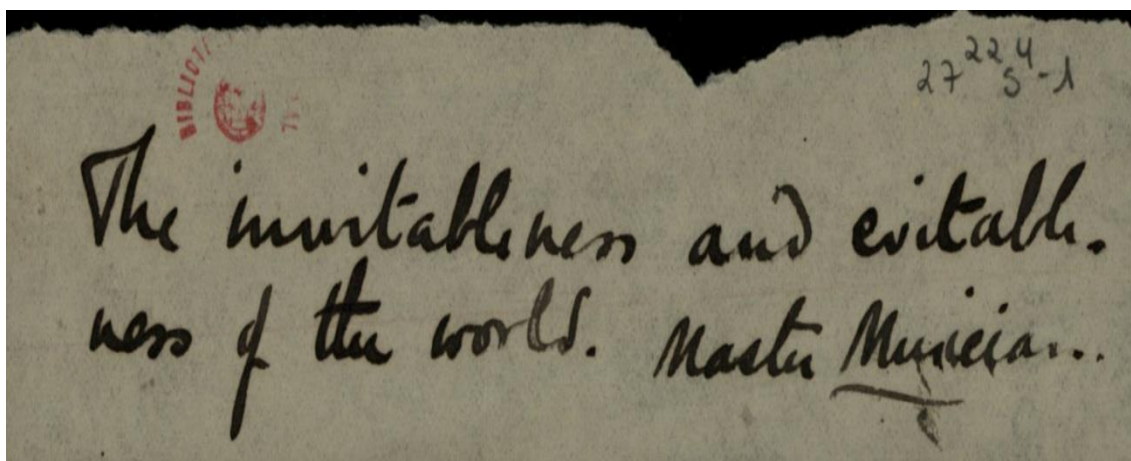 BIBLIOT
27 22
The inevitableness and evitable-
ness of the world. Master Musician..